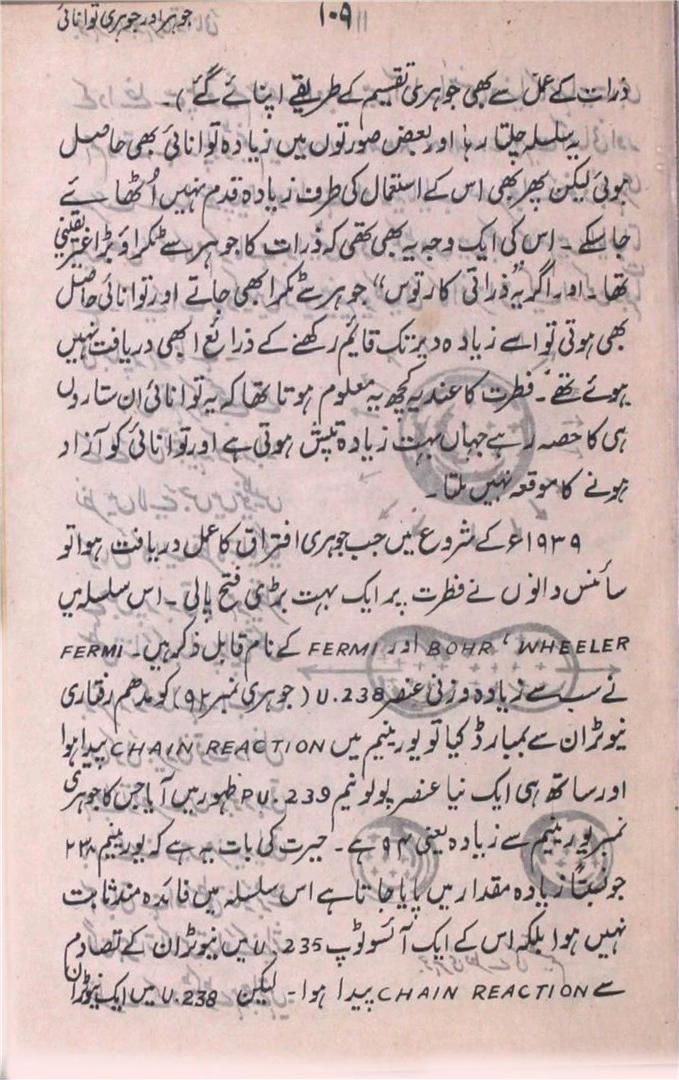 جوہر اور جوہری توانائی
۱۰۹
ذرات کے عمل سے بھی جوہری تقسیم کے طریقے اپنائے گئے)۔
یہ سلسلہ چلتا رہا اور بعض صورتوں میں زیادہ توانائی بھی حاصل
ہوئی لیکن پھر بھی اس کے استعمال کی طرف زیادہ قدم نہیں اُٹھائے
جا سکے۔ اس کی ایک وجہ یہ بھی تھی کہ ذرات کا جوہر سے ٹکراؤ بڑا غیر یقینی
تھا۔ اور اگر یہ ”ذراتی کارتوس“ جوہر سے ٹکرا بھی جاتے اور توانائی حاصل
بھی ہوتی تو اسے زیادہ دیر تک قائم رکھنے کے ذرائع ابھی دریافت نہیں
ہوئے تھے۔ فطرت کا عندیہ کچھ یہ معلوم ہوتا تھا کہ یہ توانائی ان ستاروں
ہی کا حصہ رہے جہاں بہت زیادہ تپش ہوتی ہے اور توانائی کو آزاد
ہونے کا موقعہ نہیں ملتا۔
۱۹۳۹ء کے شروع میں جب جوہری افتراق کا عمل دریافت ہوا تو
سائنس دانوں نے فطرت پر ایک بہت بڑی فتح پالی۔ اس سلسلہ میں
BOHR ، WHEELER اور FERMI کے نام قابل ذکر ہیں۔ FERMI
نے سب سے زیادہ وزنی عنصر U.238 (جوہری نمبر ۹۲) کو مدھم رفتاری
نیوٹران سے بمبارڈ کیا تو یورینیم میں CHAIN REACTION پیدا ہوا
اور ساتھ ہی ایک نیا عنصر پولونیم PU.239 ظہور میں آیا جس کا جوہری
نمبر یورینیم سے زیادہ یعنی ۹۴ ہے۔ حیرت کی بات یہ ہے کہ یورینیم ۲۳۸
جو نسبتاً زیادہ مقدار میں پایا جاتا ہے اس سلسلہ میں فائدہ مند ثابت
نہیں ہوا بلکہ اس کے ایک آئسوٹوپ U.235 میں نیوٹران کے تصادم
سے CHAIN REACTION پیدا ہوا۔ لیکن U.238 میں ایک نیوٹران